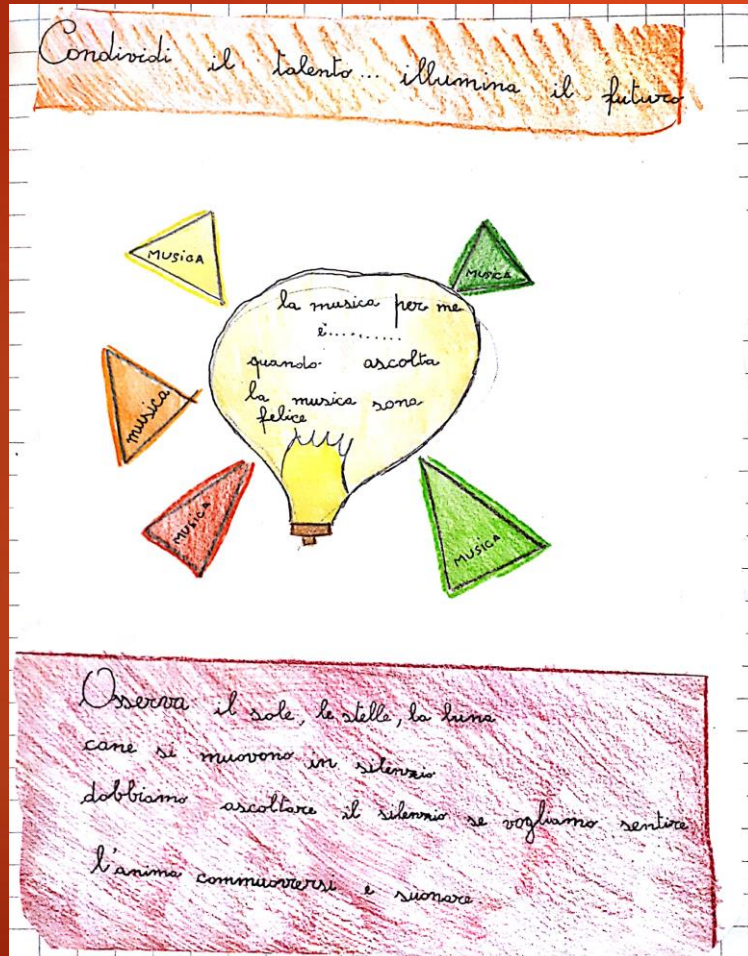 Condividi il talento... illumina il futuro
MUSICA
MUSICA
la musica per me
è.........
quando ascolta
la musica sono
felice
musica
MUSICA
MUSICA
Osserva il sole, le stelle, la luna
come si muovono in silenzio
dobbiamo ascoltare il silenzio se vogliamo sentire
l'anima commuoversi e suonare